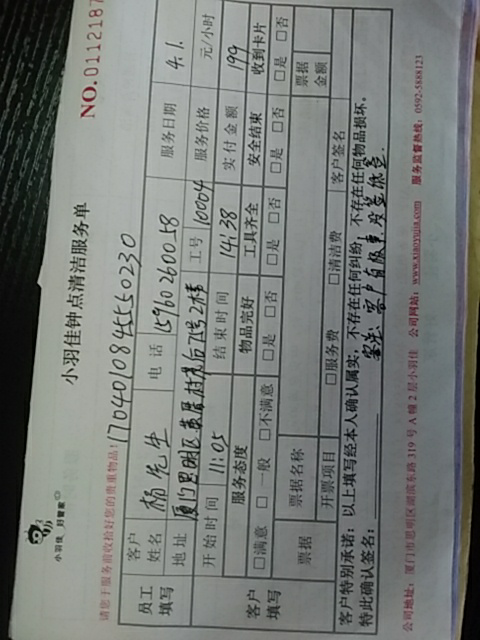 小羽佳 好管家
小羽佳钟点清洁服务单
NO.0112187
请您于服务前收捡好您的贵重物品！
17040108455550230
员工填写
客户姓名 杨先生 电话 15960260058 服务日期 4.1.
地址 工号 10004 服务价格 元/小时
开始时间 11:05 结束时间 14:38 实付金额 199
客户填写
服务态度 物品完好 工具齐全 安全结束 收到卡片
□满意 □一般 □不满意 □是 □否 □是 □否 □是 □否 □是 □否
票据 票据名称 票据金额
开票项目 □服务费 □清洁费 客户签名
客户特别承诺：以上填写经本人确认属实，不存在任何纠纷，不存在任何物品损坏。
特此确认签名：
公司地址：厦门市思明区湖滨东路319号A幢2层小羽佳 公司网站：www.xiaoyujia.com 服务监督热线：0592-5888123